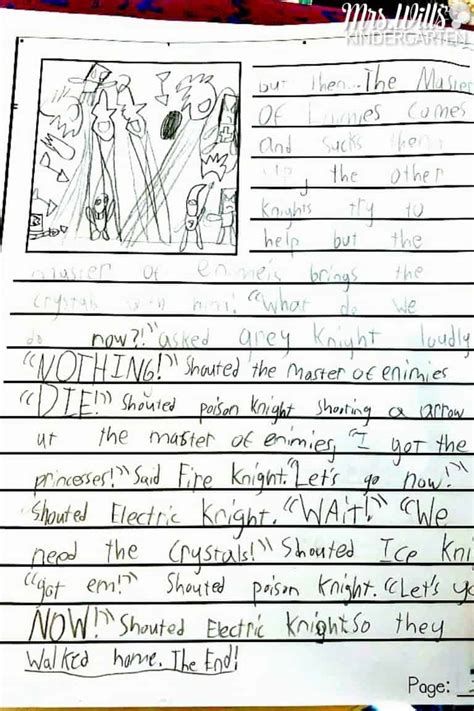 Mrs. Wills'
KINDERGARTEN
but then... The Master
Of Enemies Comes
and sucks them
up, the other
knights try to
help but the
master of enemeis brings the
crystals with him! "What do we
do now?!" asked grey Knight loudly
"NOTHING!" Shouted the master of enimies
"DIE!" Shouted poison Knight shooting a arrow
at the master of enimies, "I got the
princesses!" Said Fire Knight. "Let's go now!"
Shouted Electric Knight. "WAIT!" "We
need the Crystals!" Shouted Ice Kni
"got em!" Shouted poison Knight. "Let's go
NOW!" Shouted Electric Knight So they
walked home. The End!
Page: